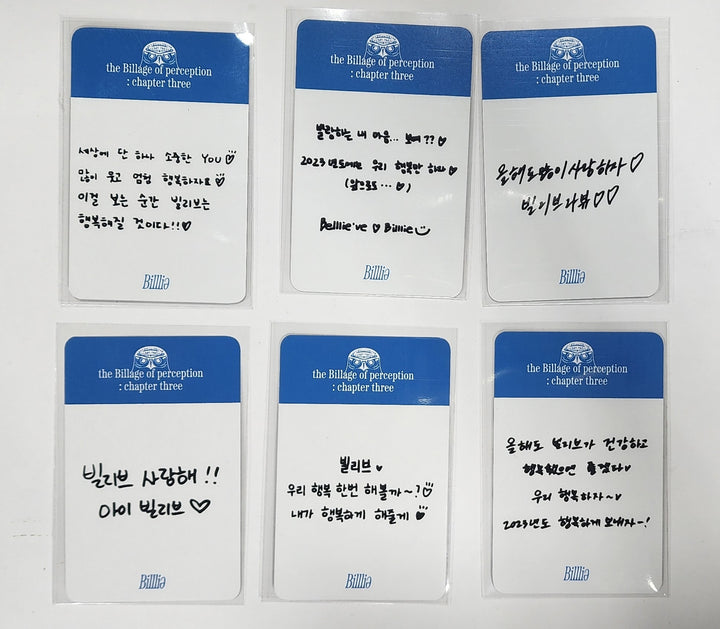 the Billage of perception
: chapter three
세상에 단 하나 소중한 YOU♡
많이 웃고 엄청 행복하자요♡
이걸 보는 순간 빌리브는
행복해질 것이다!!♡
Billlie
the Billage of perception
: chapter three
사랑하는 내 마음... 보여??♡
2023년도에는 우리 행복만 하자♡
(앞으로도...♡)
Belllie've ♡ Billlie
Billlie
the Billage of perception
: chapter three
올해도 많이 사랑하자♡
빌리브 라뷰♡♡
Billlie
the Billage of perception
: chapter three
빌리브 사랑해!!
아이 빌리브♡
Billlie
the Billage of perception
: chapter three
빌리브♥
우리 행복 한번 해볼까~?♡
내가 행복하게 해줄게♡
Billlie
the Billage of perception
: chapter three
올해도 빌리브가 건강하고
행복했으면 좋겠다♡
우리 행복하자~♡
2023년도 행복하게 보내자~!
Billlie